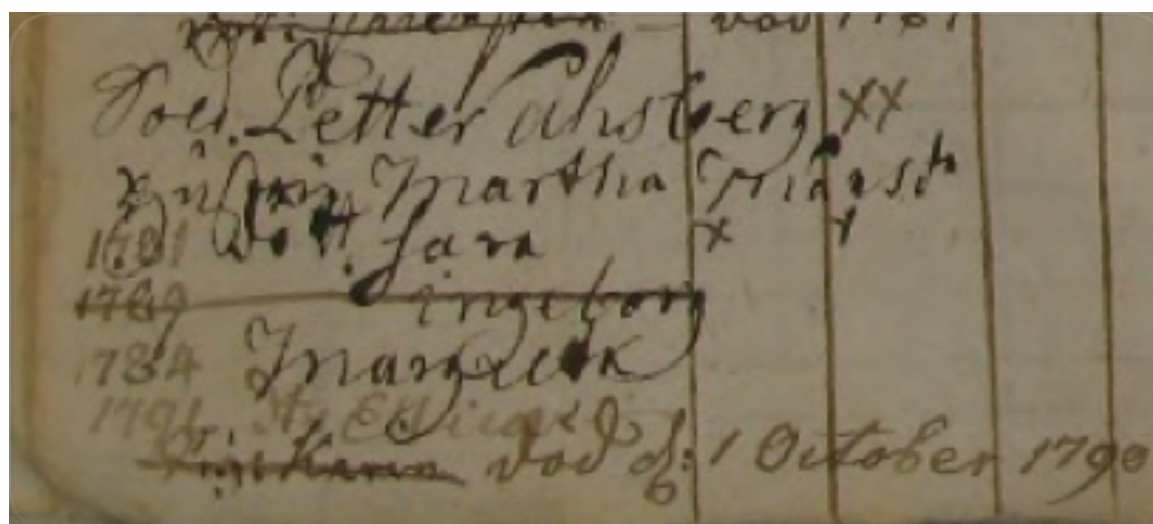 död 1787
Sold. Petter Ahsberg xx
Hustrun Martha Månsdr
1781 Dott. Sara x x
1789 ingeborg
1784 Margreta
1791
Karin död d: 1 October 1790